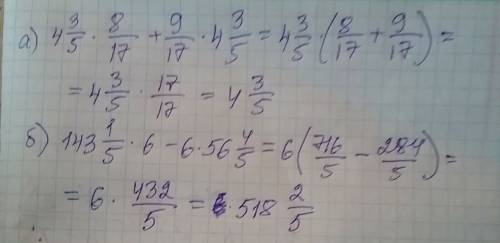 а) 4 3/5 · 8/17 + 9/17 · 4 3/5 = 4 3/5 · (8/17 + 9/17) =
= 4 3/5 · 17/17 = 4 3/5
б) 143 1/5 · 6 - 6 · 56 4/5 = 6 (716/5 - 284/5) =
= 6 · 432/5 = 518 2/5